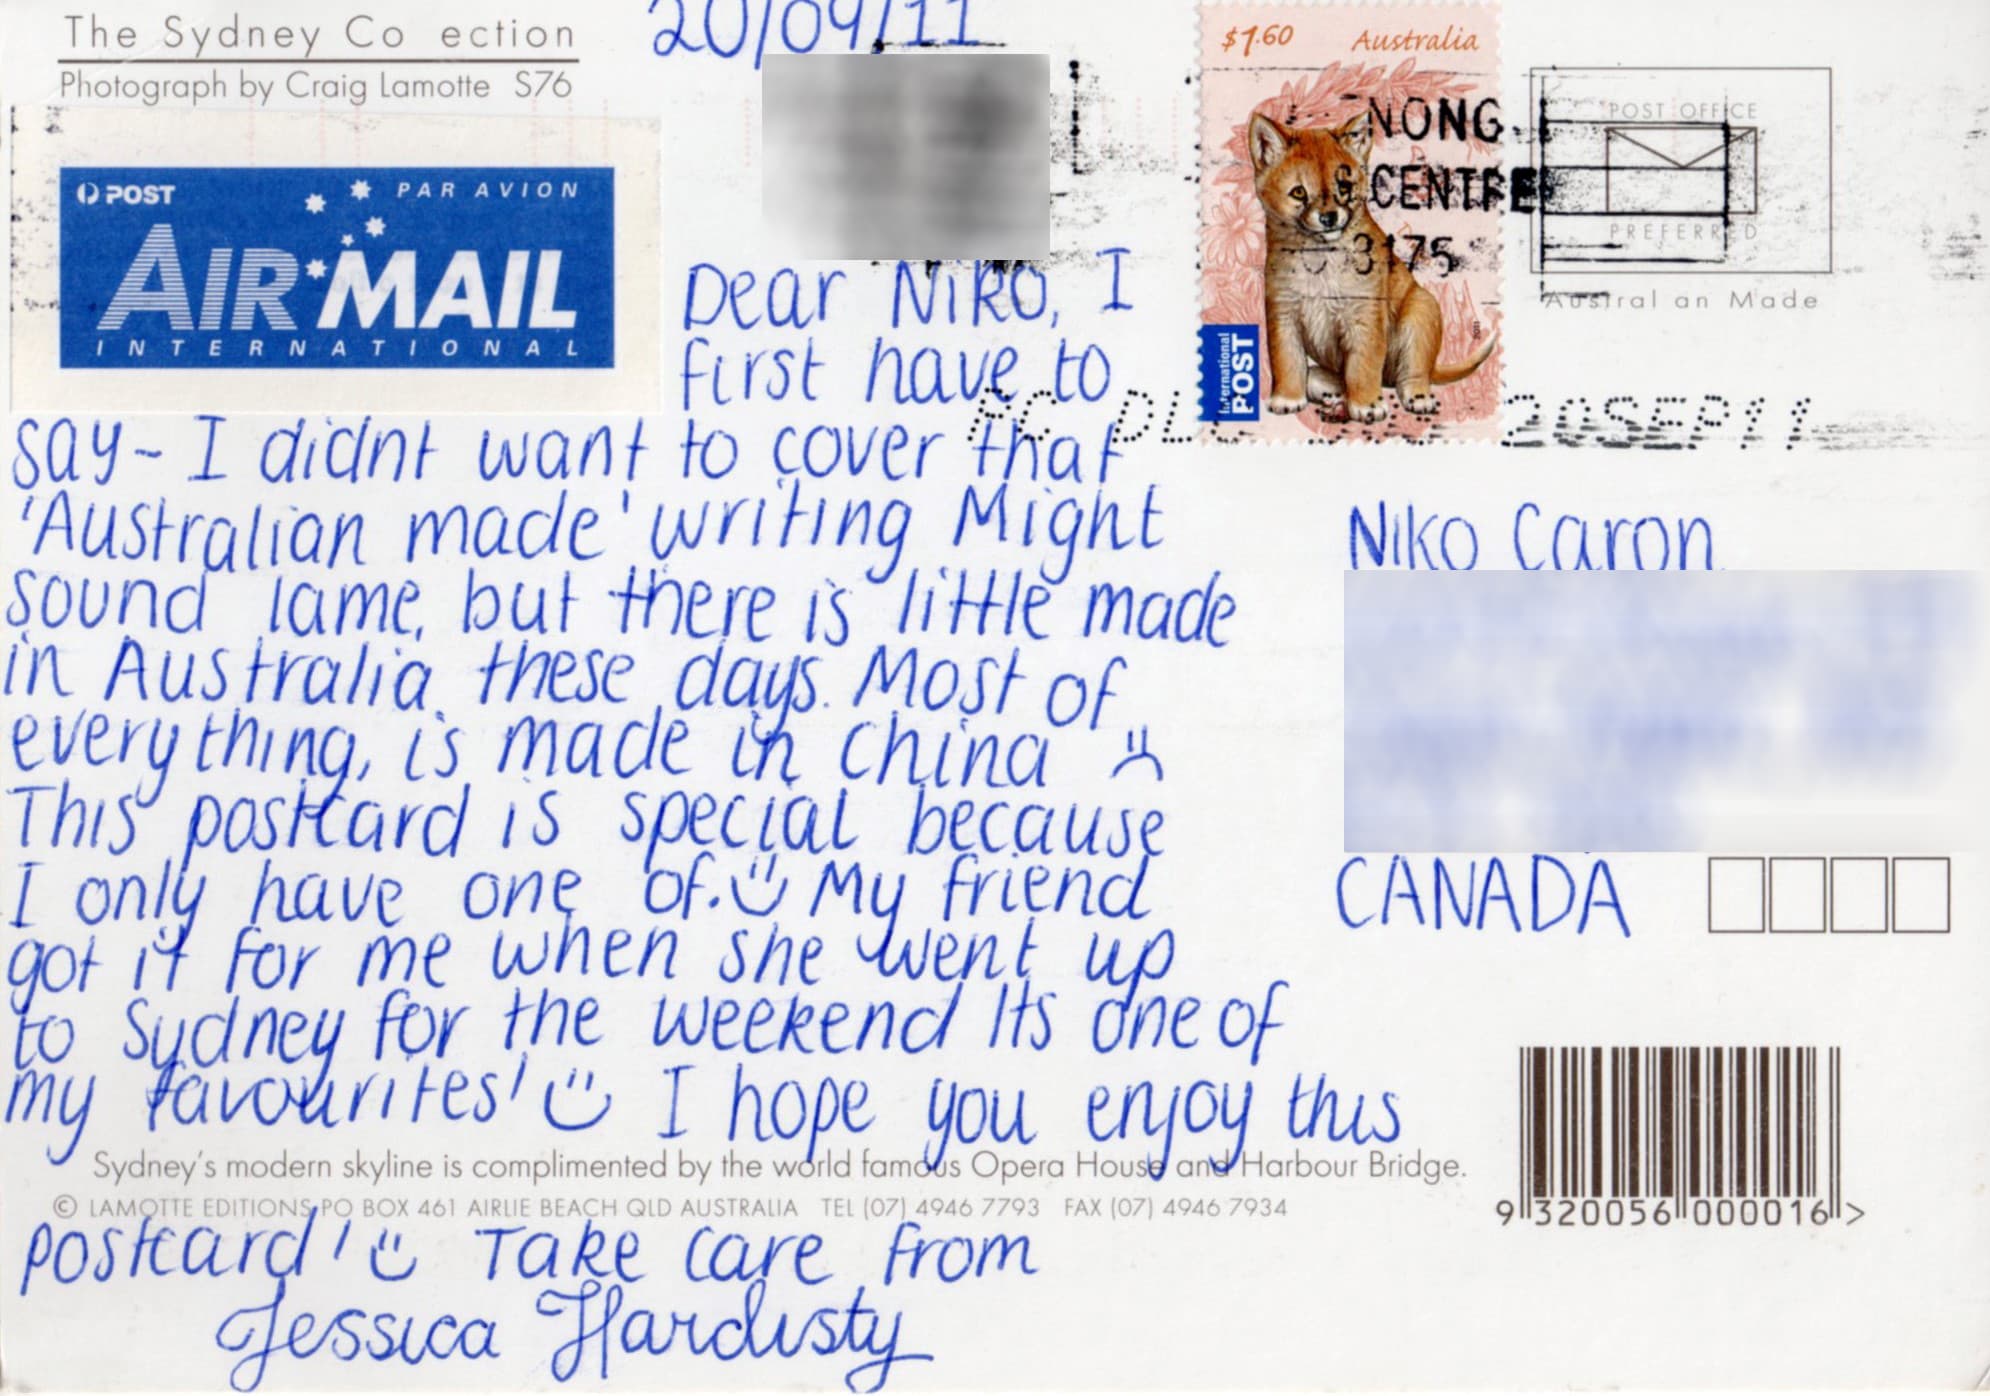 The Sydney Co ection
Photograph by Craig Lamotte S76
20/09/11
$1.60 Australia
International
POST
2011
NONG
CENTRE
3175
20SEP11
POST OFFICE
PREFERRED
Austral an Made
POST PAR AVION
AIR MAIL
INTERNATIONAL
Dear Niko, I
first have to
say~ I didnt want to cover that
'Australian made' writing Might
sound lame, but there is little made
in Australia these days. Most of
everything, is made in China
This postcard is special because
I only have one of. My friend
got it for me when she went up
to Sydney for the weekend Its one of
my favourites! I hope you enjoy this
Sydney's modern skyline is complimented by the world famous Opera House and Harbour Bridge.
© LAMOTTE EDITIONS PO BOX 461 AIRLIE BEACH QLD AUSTRALIA TEL (07) 4946 7793 FAX (07) 4946 7934
postcard! Take care from
Jessica Hardisty
Niko Caron
CANADA
9 320056 000016 >